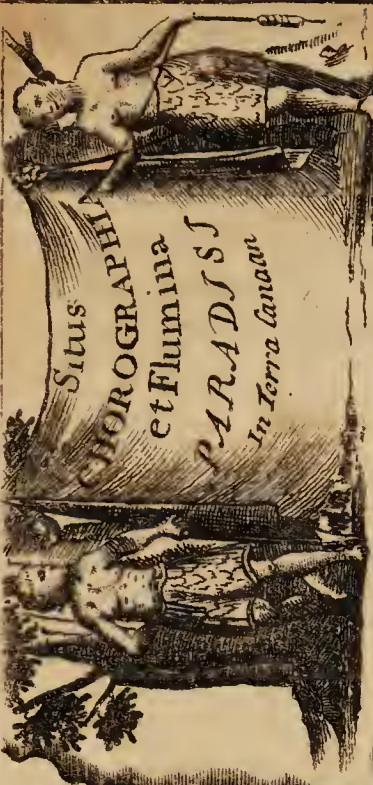 Situs
CHOROGRAPHIA
et Flumina
PARADISI
In Terra Canaan